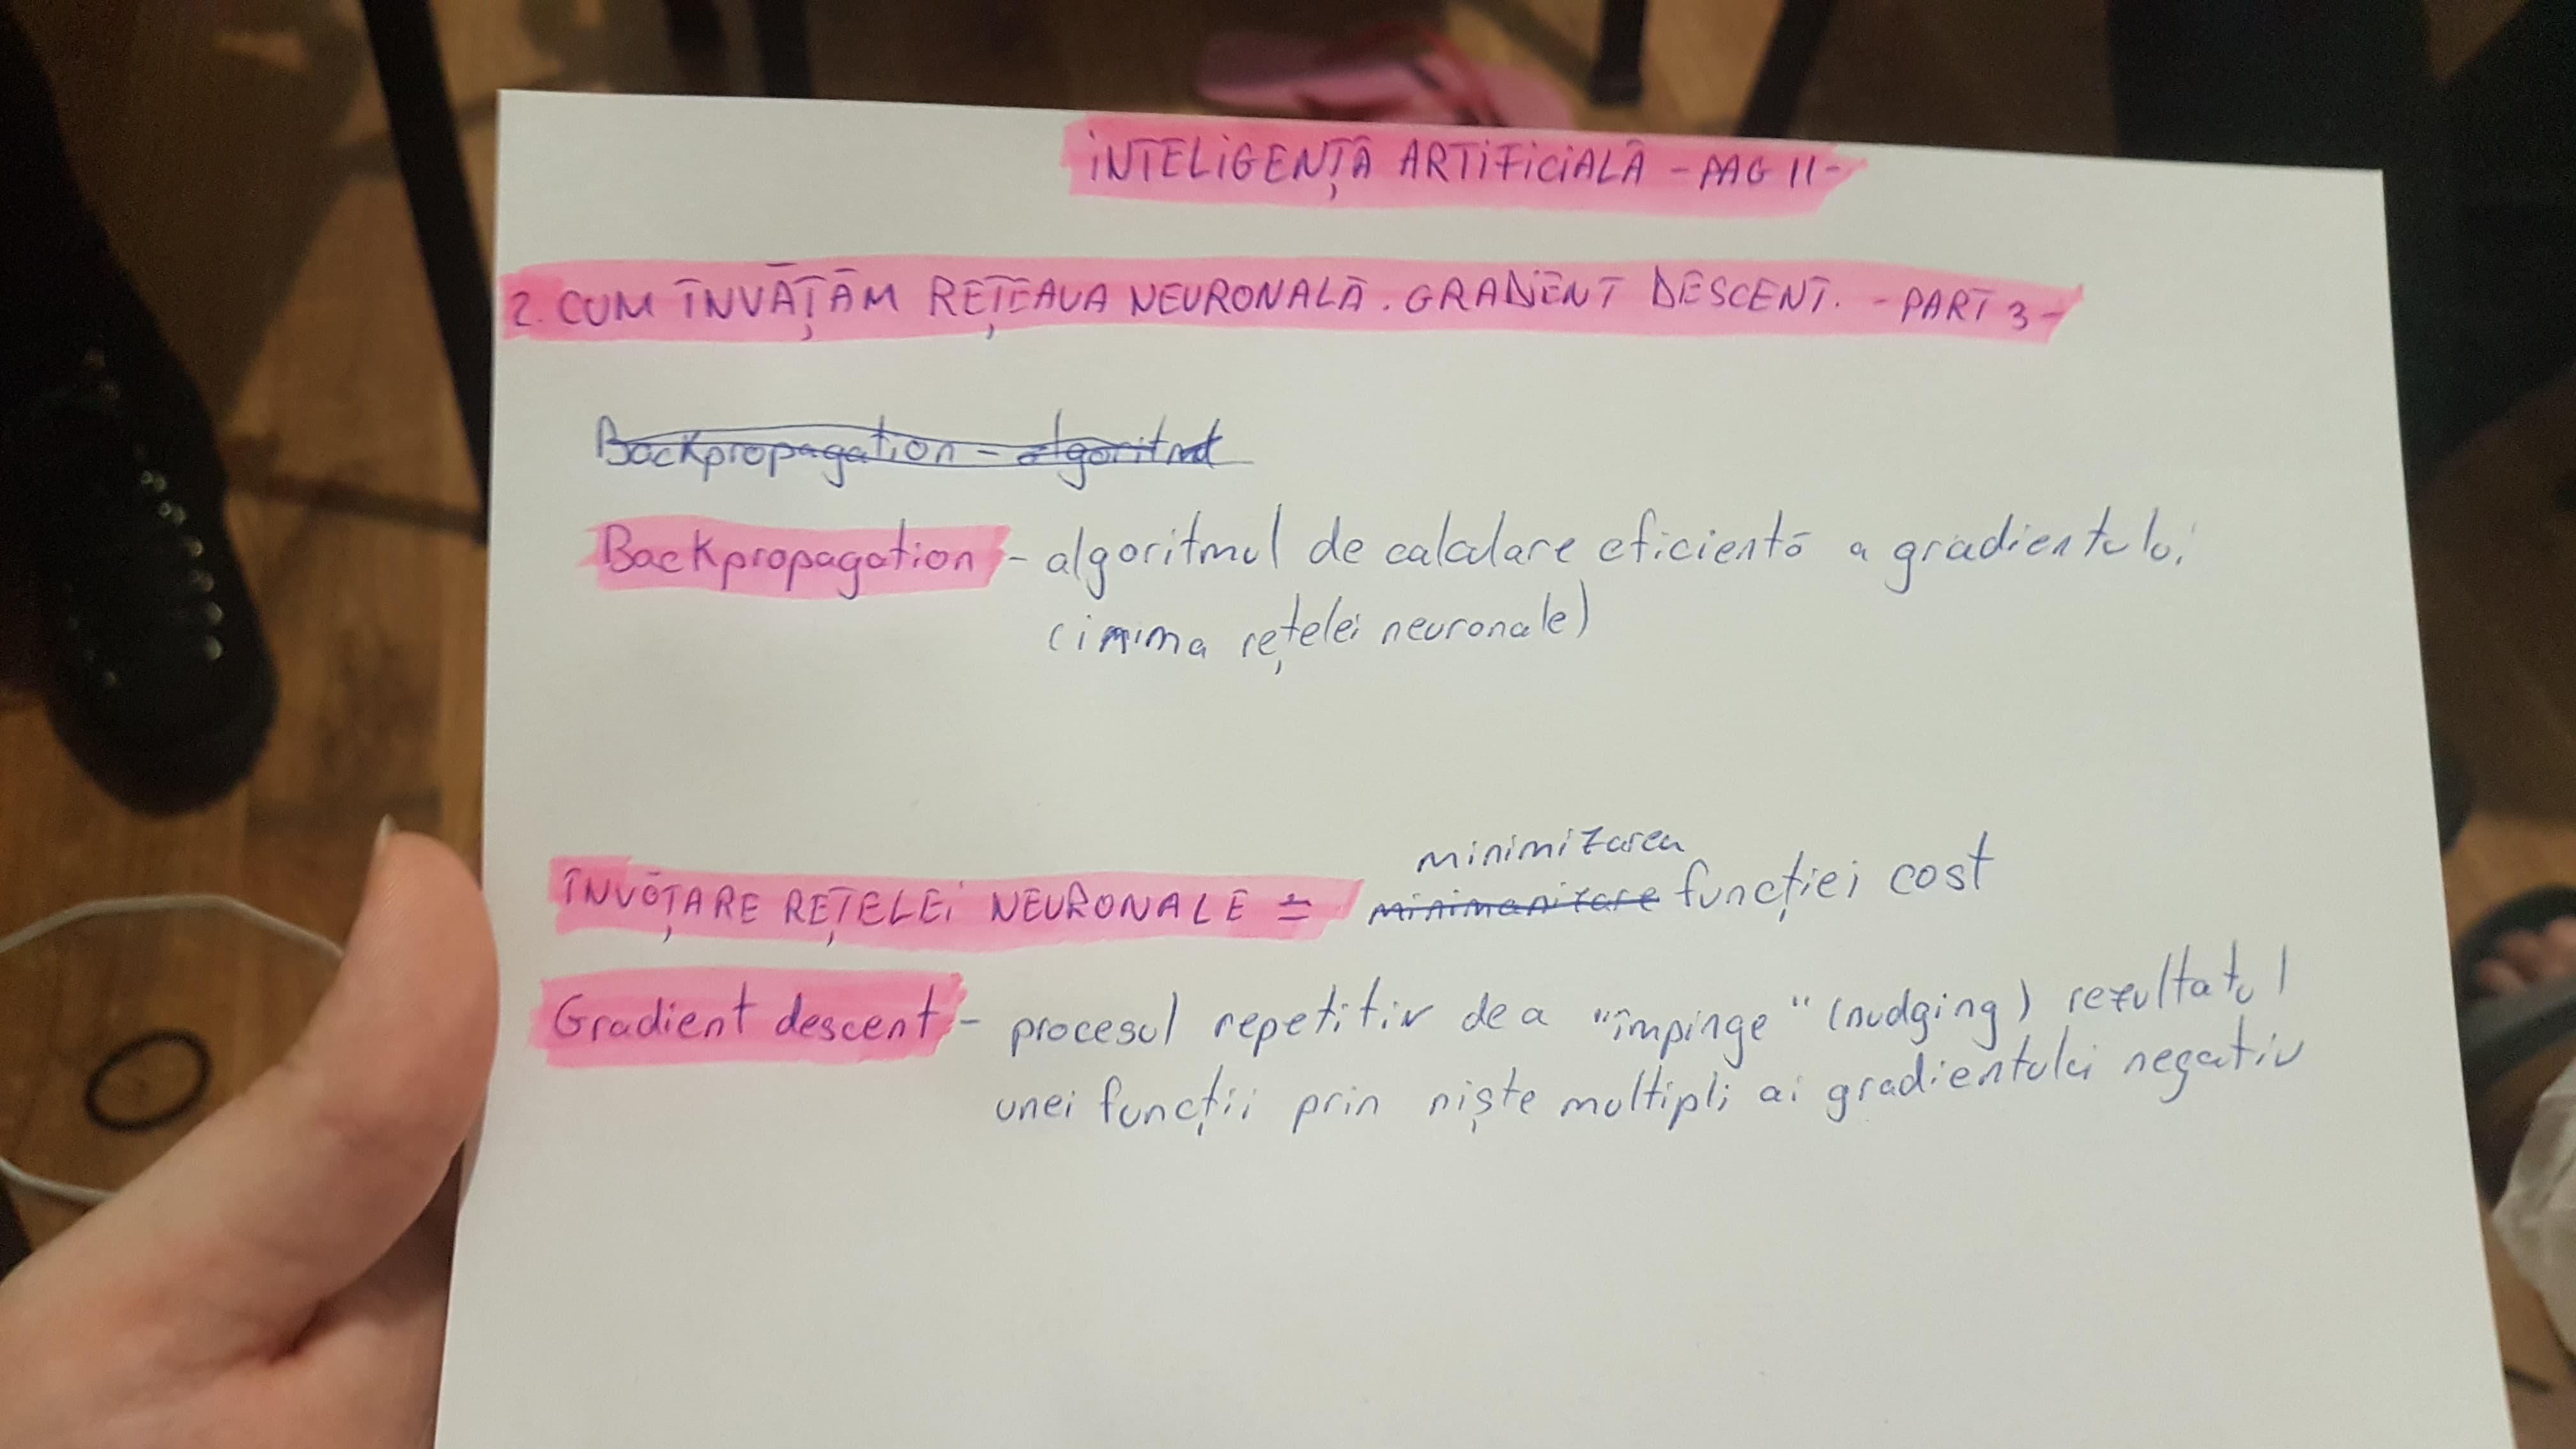 INTELIGENȚĂ ARTIFICIALĂ - PAG 11 -
2. CUM ÎNVĂȚĂM REȚEAUA NEURONALĂ. GRADIENT DESCENT. - PART 3 -
Backpropagation - algoritmul
Backpropagation - algoritmul de calculare eficientă a gradientului
(inima rețelei neuronale)
minimizarea
ÎNVĂȚARE REȚELEI NEURONALE = minimanizare funcției cost
Gradient descent - procesul repetitiv de a "împinge" (nudging) rezultatul
unei funcții prin niște multipli ai gradientului negativ